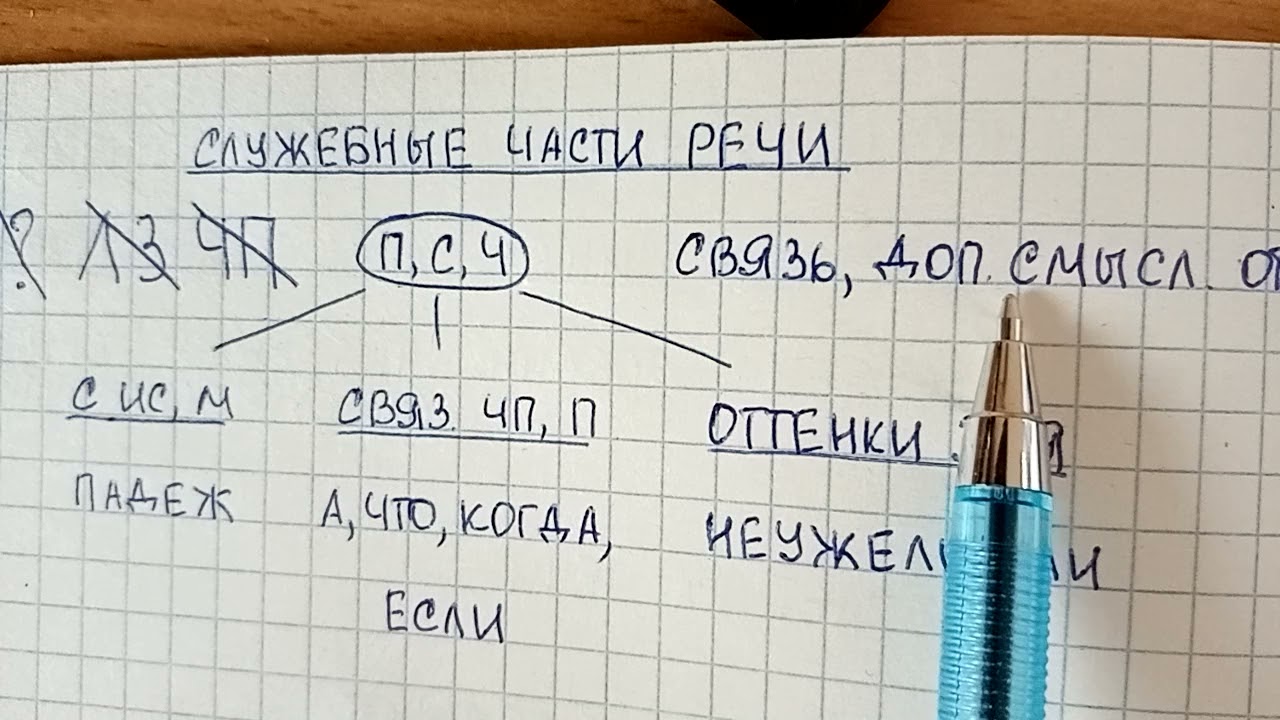 СЛУЖЕБНЫЕ ЧАСТИ РЕЧИ
? ЛЗ ЧП П, С, Ч СВЯЗЬ, ДОП. СМЫСЛ.
С ИС, М СВЯЗ. ЧП, П ОТТЕНКИ
ПАДЕЖ А, ЧТО, КОГДА,
ЕСЛИ